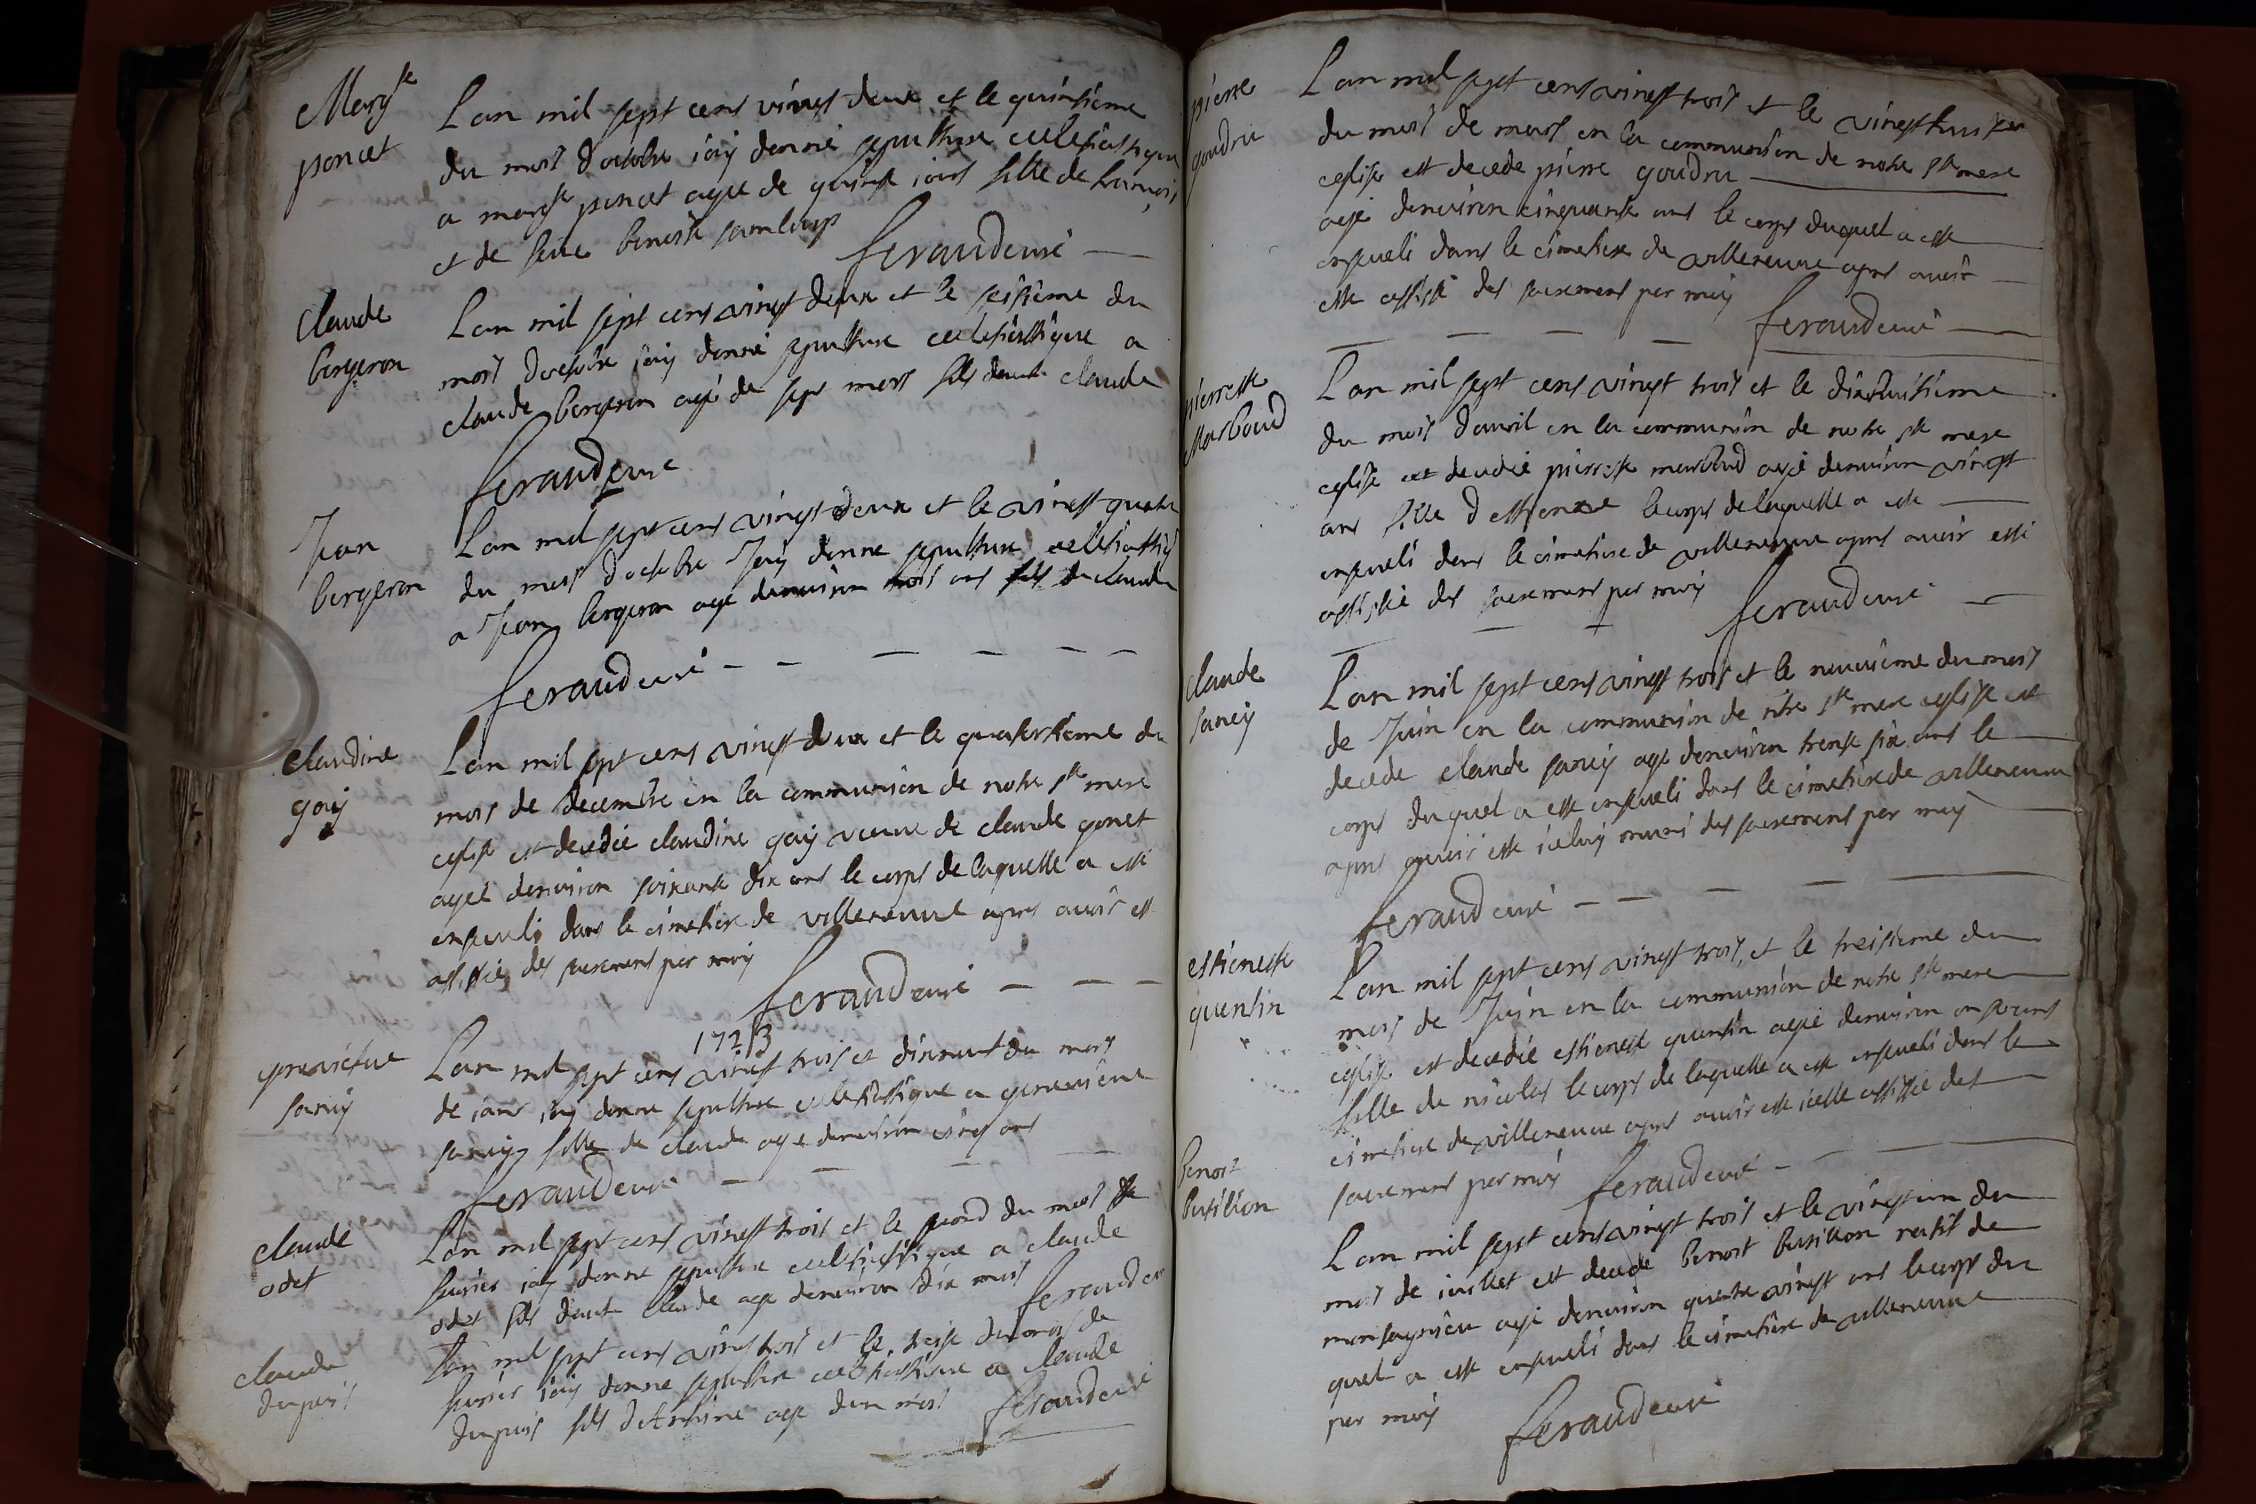 Marg.te
poncet
L an mil sept cens vingt deux et le quinsieme
du mois doctobre iay donné sepulture eclesiastique
a marg.te poncet agee de quinse iours fille de francois
et de feue benoiste
feraud curé
claude
bergeron
L an mil sept cens vingt deux et le seisieme du
mois doctobre iay donné sepulture ecclesiastique a
claude bergeron agé de sept mois fils daut claude
feraud curé
Jean
bergeron
L an mil sept cens vingt deux et le vingt quatre
du mois doctobre Jay donne sepulture eclesiastiq
a Jean bergeron age denviron trois ans fils de claude
feraud curé
claudine
gay
L an mil sept cens vingt deux et le quatorsieme du
mois de decembre en la communion de notre s.te mere
eglise est decedée claudine gay veuve de claude gonet
agee denviron soixante dix ans le corps de laquelle a esté
enseveli dans le cimetiere de villeneuve apres avoir esté
assistée des sacremens par moy
feraud curé
1723
genevieve
sancy
L an mil sept cens vingt trois et dixneuf du mois
de ianv iay donne sepulture eclesiastique a genevieve
sancy fille de claude age denviron cinq ans
feraud curé
claude
odet
L an mil sept cens vingt trois et le second du mois de
fevrier iay donne sepulture eclesiastique a claude
odet fils daut claude age denviron dix mois
feraud cur
claude
dupuis
L an mil sept cens vingt trois et le treise du mois de
fevrier iay donne sepulture eclesiastique a claude
dupuis fils dAntoine age dun mois
feraud curé
pierre
goudru
L an mil sept cens vingt trois et le vingt huit
du mois de mars en la communion de notre s.te mere
eglise est decede pierre goudru
agé denviron cinquante ans le corps duquel a esté
enseveli dans le cimetiere de villeneuve apres avoir
esté assisté des sacremens par moy
feraud curé
pierrette
Marboud
L an mil sept cens vingt trois et le dixhuitieme
du mois davril en la communion de notre s.te mere
eglise est decedée pierrette marboud agé denviron vingt
ans fille d estienne le corps de laquelle a esté
enseveli dans le cimetiere de villeneuve apres avoir esté
assistée des sacremens par moy
feraud curé
claude
sancy
L an mil sept cens vingt trois et le neuvieme du mois
de Juin en la communion de nôtre s.te mere eglise est
decede claude sancy age denviron trente six ans le
corps duquel a esté enseveli dans le cimetiere de villeneuve
apres avoir esté iceluy muni des sacremens par moy
feraud curé
estienette
quentin
L an mil sept cens vingt trois, et le treisieme du
mois de Juin en la communion de notre s.te mere
eglise est decedée estienette quentin agée denviron ans
fille de nicolas le corps de laquelle a esté enseveli dans le
cimetiere de villeneuve apres avoir esté icelle assistée des
sacremens par moy feraud curé
benoit
butillon
L an mil sept cens vingt trois et le vingt un du
mois de iuillet est decedé benoit butillon natif de
agé denviron quatre vingt ans le corps du
quel a esté enseveli dans le cimetiere de villeneuve
par moy
feraud curé